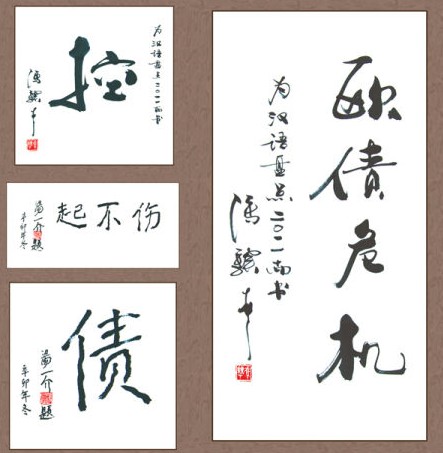 控
为汉语盘点二〇一一而书
冯骥才
伤不起
汤一介题
辛卯年冬
债
汤一介题
辛卯年冬
欧债危机
为汉语盘点二〇一一而书
冯骥才